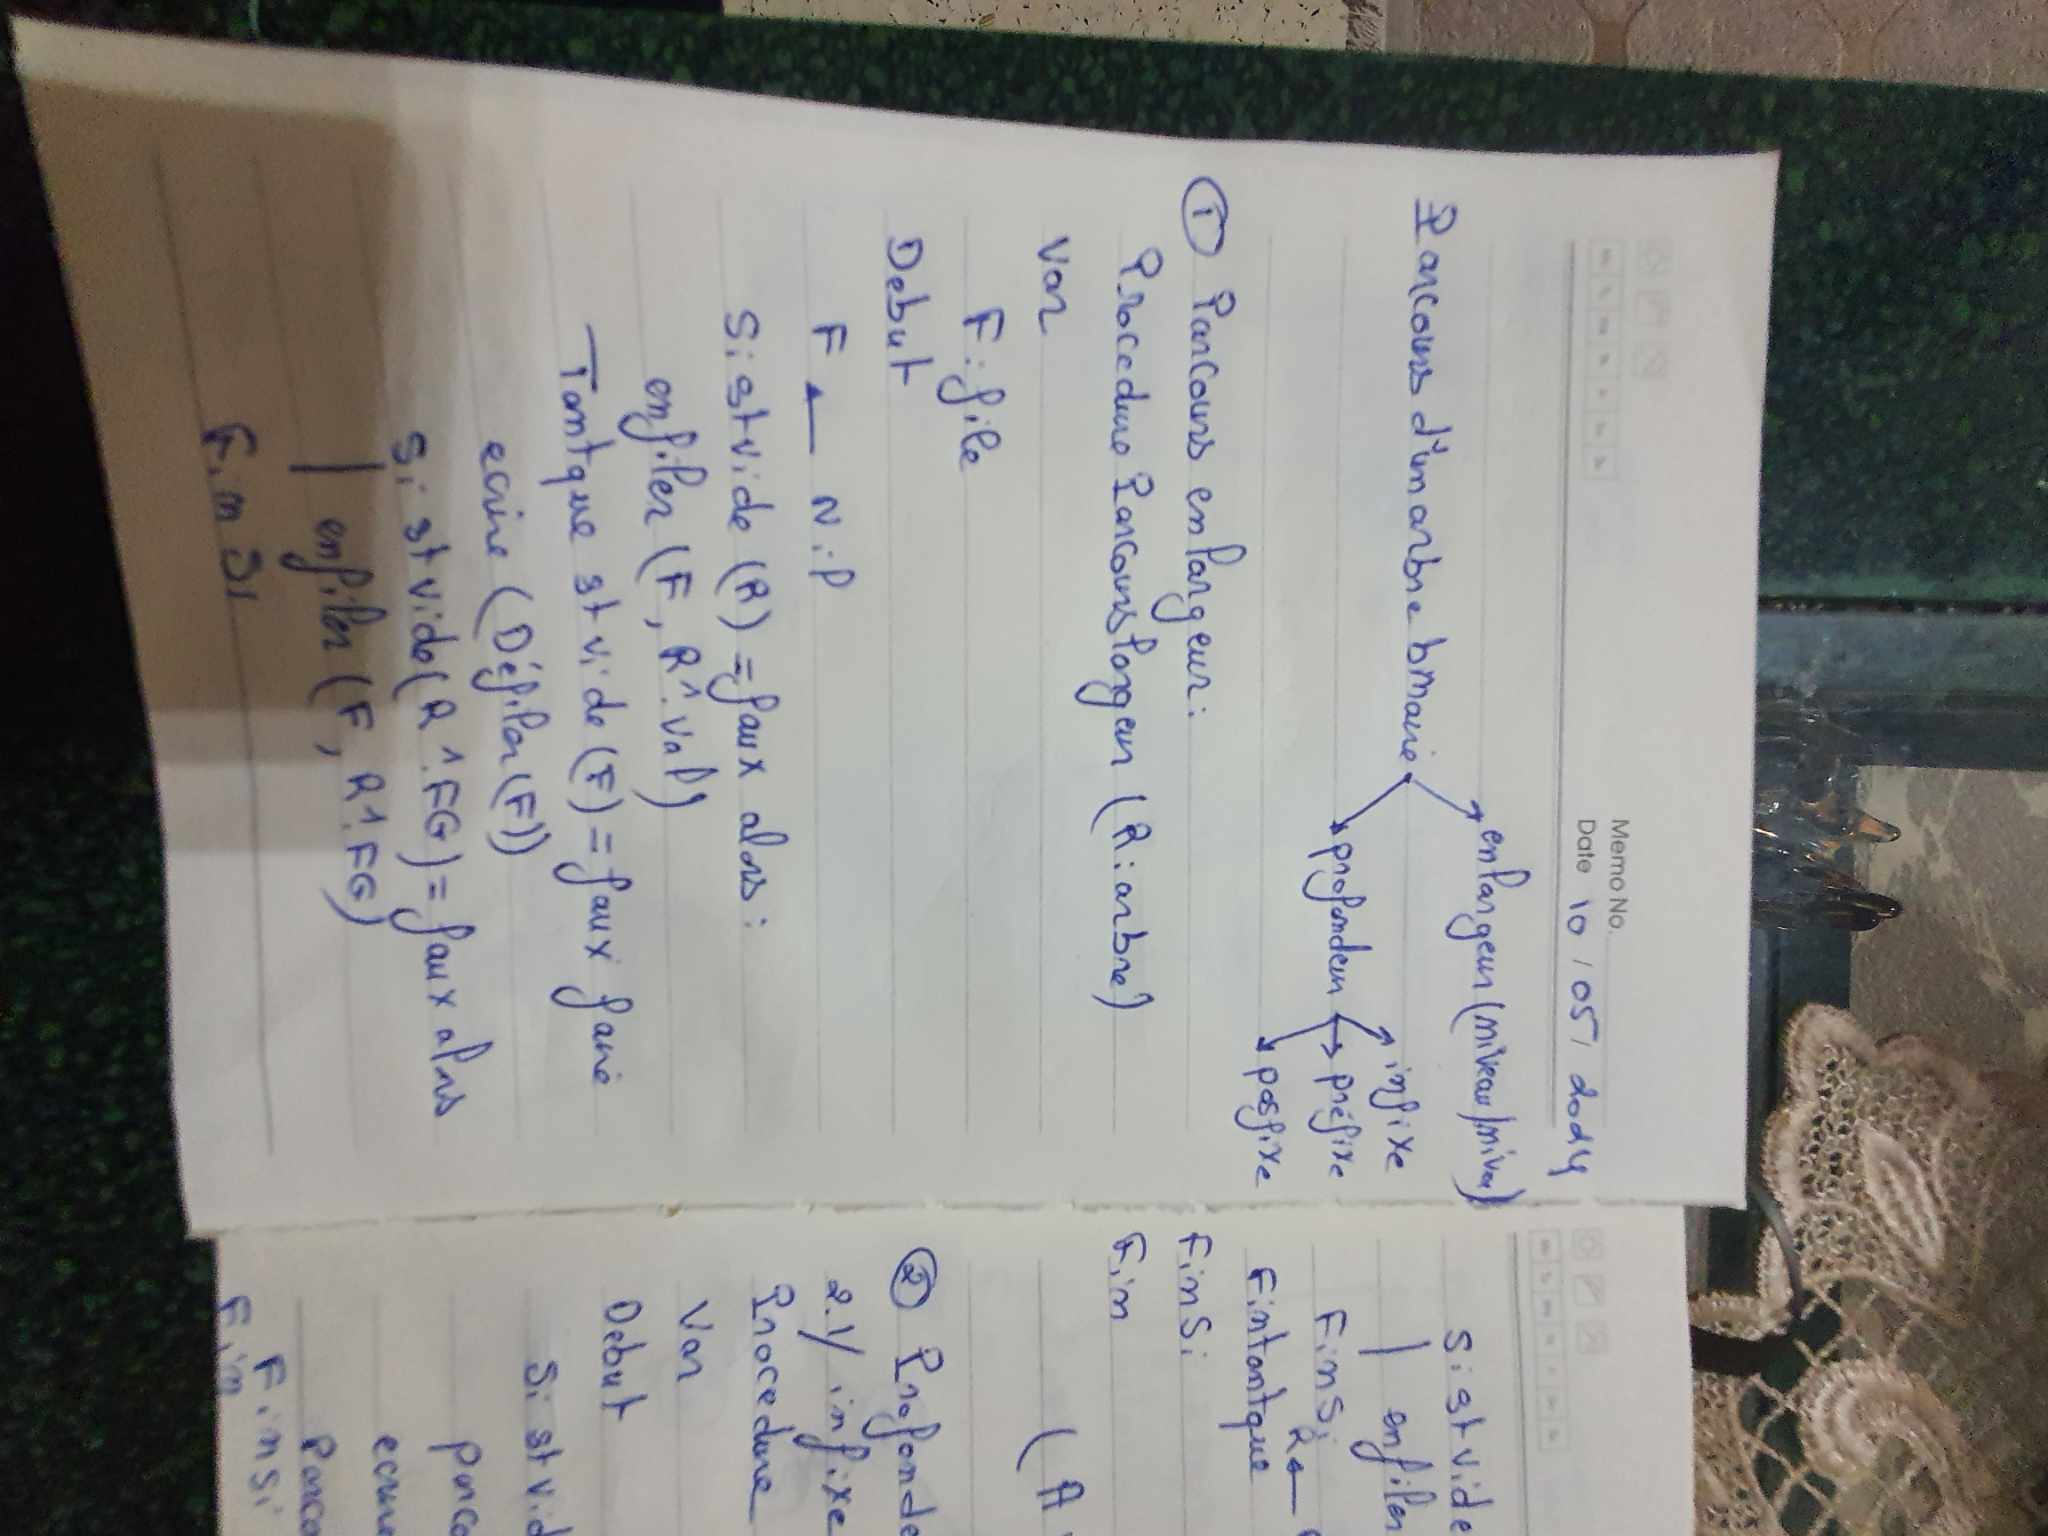 Memo No.
Date 10 / 05 / 2024
enlargeur (niveau/niveau)
Parcours d'un arbre binaire
infixe
profondeur
préfixe
posfixe
① Parcours enlargeur:
Procedure Parcourslargeur (R: arbre)
Var
F: file
Debut
F ← Nil
Si stvide (R) = faux alors:
enfiler (F, R^.val)
Tantque st vide (F) = faux faire
ecrire (Défiler(F))
Si st vide (R^.FG) = faux alors
enfiler (F, R^.FG)
Fin Si
Si st vide
enfiler
FinSi
R ←
Fintantque
FinSi
Fin
( A
② Profonde
2.1/ infixe
Procedure
Var
Debut
Si st vid
parco
ecrire
Parco
FinSi
Fin